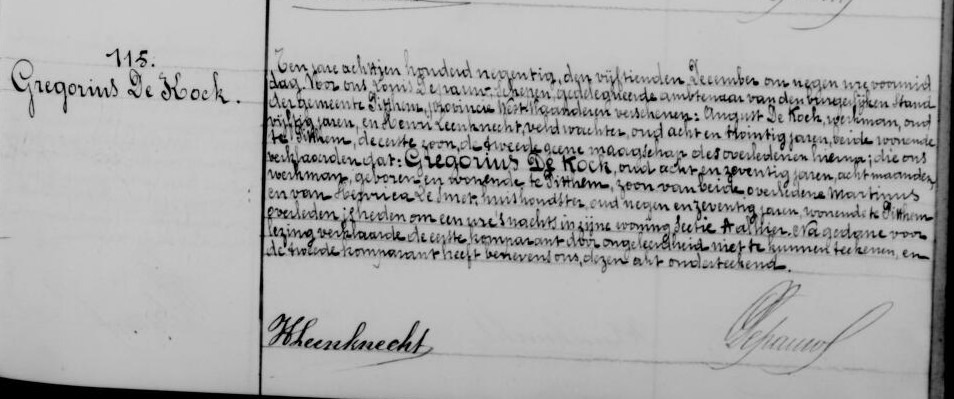 115.
Gregorius De Kock.
Ten jare achttien honderd negentig, den vijftienden December om negen ure voormid
dag. Voor ons Depauw, Schepen gedelegueerde ambtenaar van den burgerlijken Stand
der gemeente Pitthem, provincie West-Vlaanderen verschenen: August De Kock, werkman, oud
vijftig jaren, en Henri Leenknecht, veldwachter, oud acht en twintig jaren, beide wonende
te Pitthem, de eerste zoon, de tweede geene maagschap des overledenen hierna; die ons
verklaarden dat: Gregorius De Kock, oud acht en zeventig jaren, acht maanden,
werkman, geboren en wonende te Pitthem, zoon van beide overledene Martinus
en van Henrica De Smet, huishoudster, oud negen en zeventig jaren, wonende te Pitthem
overleden is heden om een ure 's nachts in zijne woning Sectie A alhier. Na gedane voor
lezing verklaarde de eerste komparant door ongeleerdheid niet te kunnen teekenen, en
de tweede komparant heeft benevens ons, dezen akt onderteekend.
HLeenknecht
Depauw